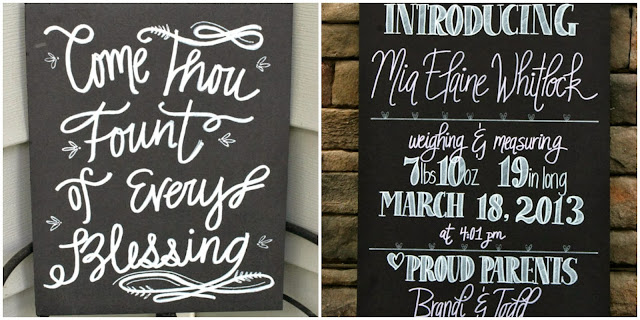 Come Thou
Fount
of Every
Blessing
INTRODUCING
Mia Elaine Whitlock
weighing & measuring
7lbs 10oz 19in long
MARCH 18, 2013
at 4:01 pm
♡PROUD PARENTS
Brandi & Todd